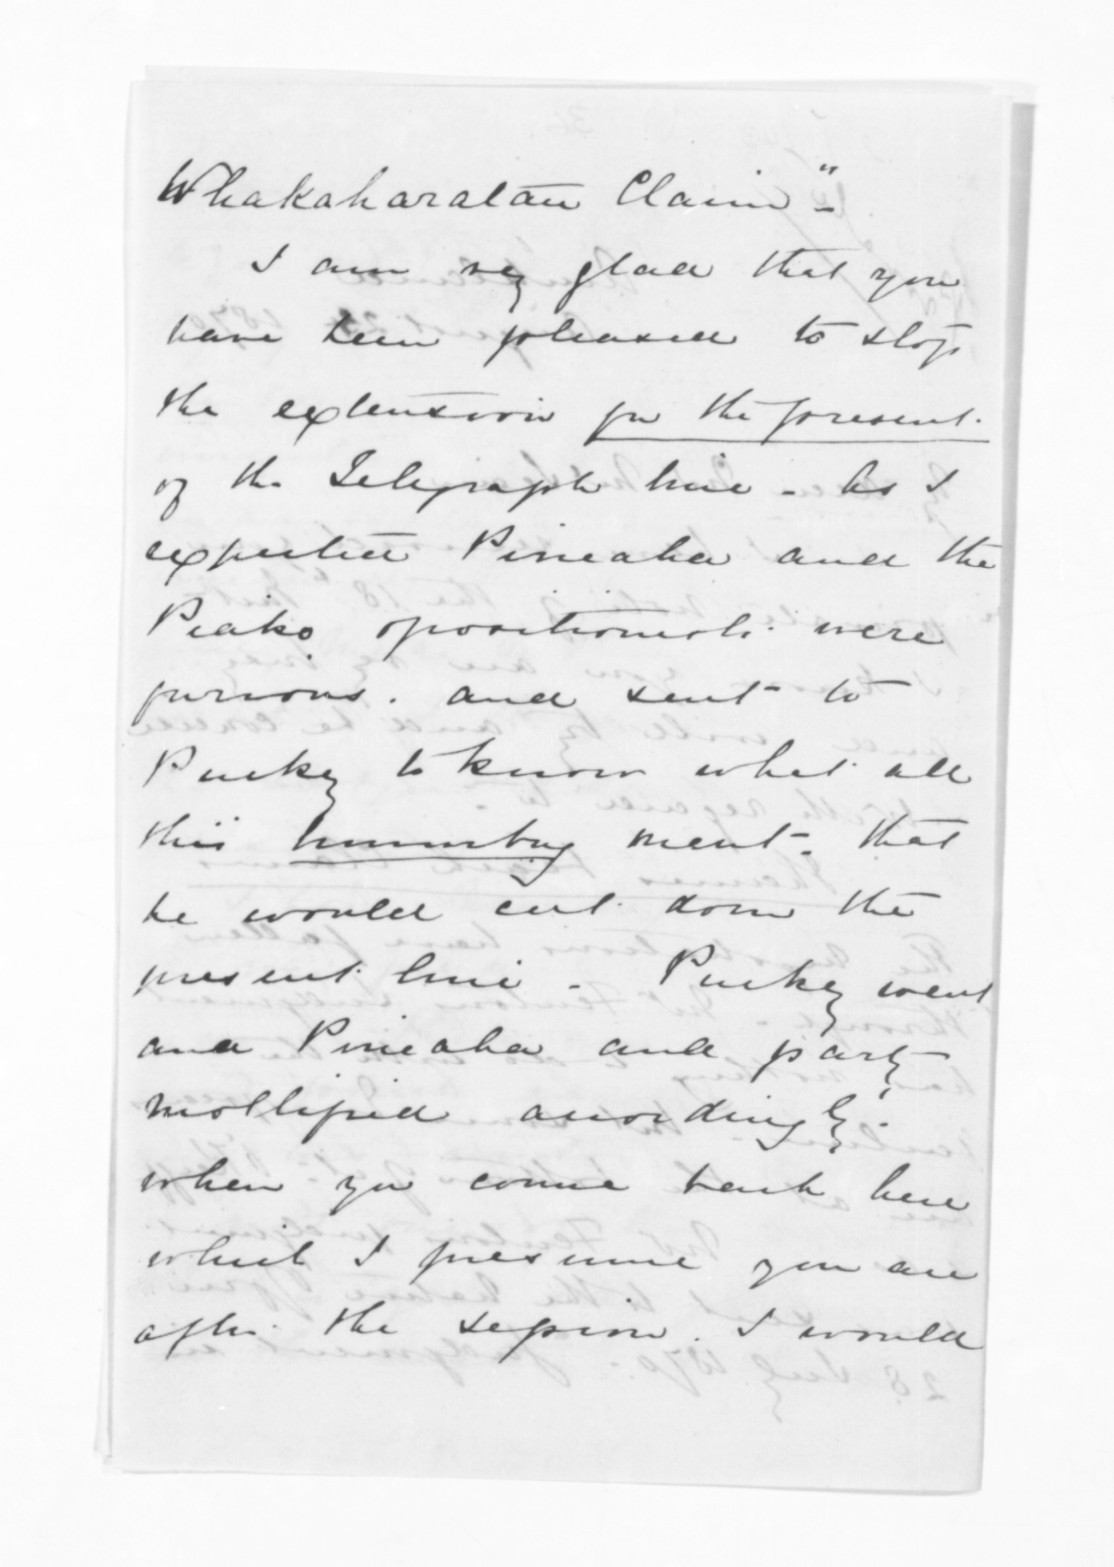 Whakaharatau Claim"-
I am very glad that you
have been pleased to stop
the extension for the present.
of the Telegraph line - As I
expected Pineaha and the
Piako opositionists were
furious. and sent to
Puckey to know what all
this humbug ment - that
he would cut down the
present line - Puckey went
and Pineaha and party
mollified accordingly.
when you come back here
which I presume you are
after the session. I would